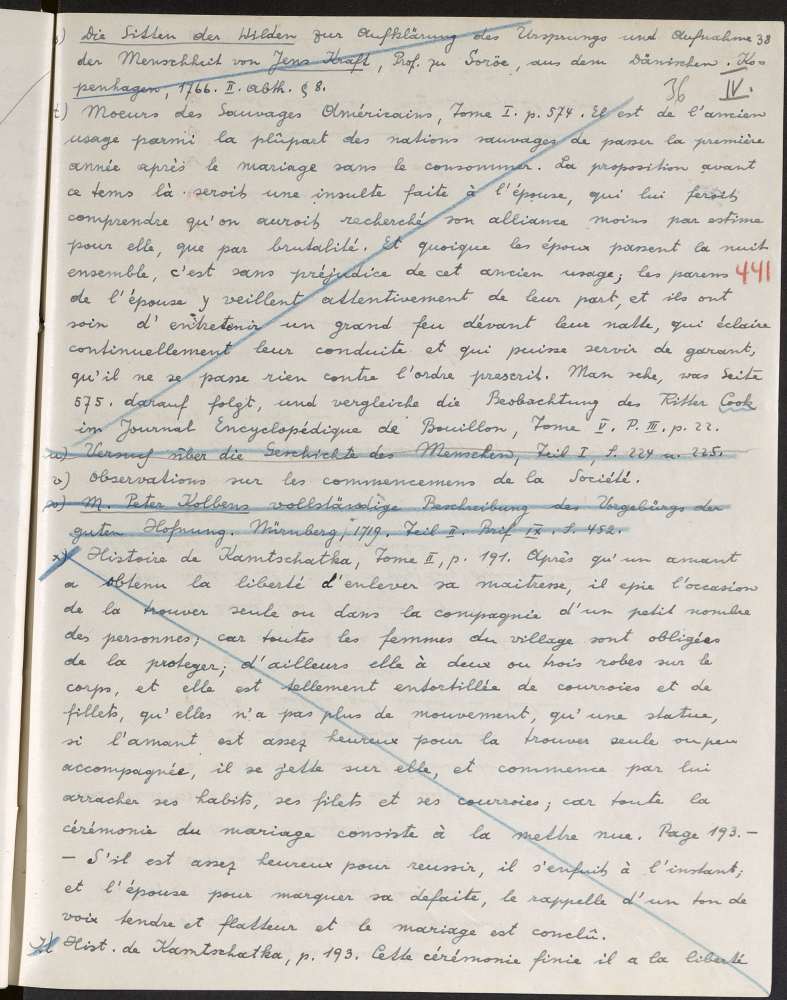 s) Die Sitten der Wilden zur Aufklärung des Ursprungs und Aufnahme 38
der Menschheit von Jens Kraft, Prof. zu Soröe, aus dem Dänischen. Ko-
penhagen, 1766. II. Abth. § 8. 36 IV.
t) Moeurs des Sauvages Américains, Tome I. p. 574. Il est de l'ancien
usage parmi la plûpart des nations sauvages de passer la première
année après le mariage sans le consommer. La proposition avant
ce tems là seroit une insulte faite à l'épouse, qui lui feroit
comprendre qu'on auroit recherché son alliance moins par estime
pour elle, que par brutalité. Et quoique les époux passent la nuit
ensemble, c'est sans préjudice de cet ancien usage; les parens 441
de l'épouse y veillent attentivement de leur part, et ils ont
soin d'entretenir un grand feu dévant leur natte, qui éclaire
continuellement leur conduite et qui puisse servir de garant,
qu'il ne se passe rien contre l'ordre prescrit. Man sehe, was Seite
575. darauf folgt, und vergleiche die Beobachtung des Ritter Cook
im Journal Encyclopédique de Bouillon, Tome V. P. III. p. 22.
u) Versuch über die Geschichte des Menschen, Teil I, S. 224 u. 225.
v) Observations sur les commencemens de la Société.
w) M. Peter Kolbens vollständige Beschreibung des Vorgebürgs der
guten Hofnung. Nürnberg, 1719. Teil II. Brif IX. S. 452.
x) Histoire de Kamtschatka, Tome II, p. 191. Après qu'un amant
a obtenu la liberté d'enlever sa maitresse, il epie l'occasion
de la trouver seule ou dans la compagnie d'un petit nombre
des personnes; car toutes les femmes du village sont obligées
de la proteger; d'ailleurs elle à deux ou trois robes sur le
corps, et elle est tellement entortillée de courroies et de
fillets, qu'elles n'a pas plus de mouvement, qu'une statue,
si l'amant est assez heureux pour la trouver seule ou peu
accompagnée, il se jette sur elle, et commence par lui
arracher ses habits, ses filets et ses courroies; car toute la
cérémonie du mariage consiste à la mettre nue. Page 193. –
– S'il est assez heureux pour reussir, il s'enfuit à l'instant;
et l'épouse pour marquer sa defaite, le rappelle d'un ton de
voix tendre et flatteur et le mariage est conclû.
Hist. de Kamtschatka, p. 193. Cette cérémonie finie il a la liberté